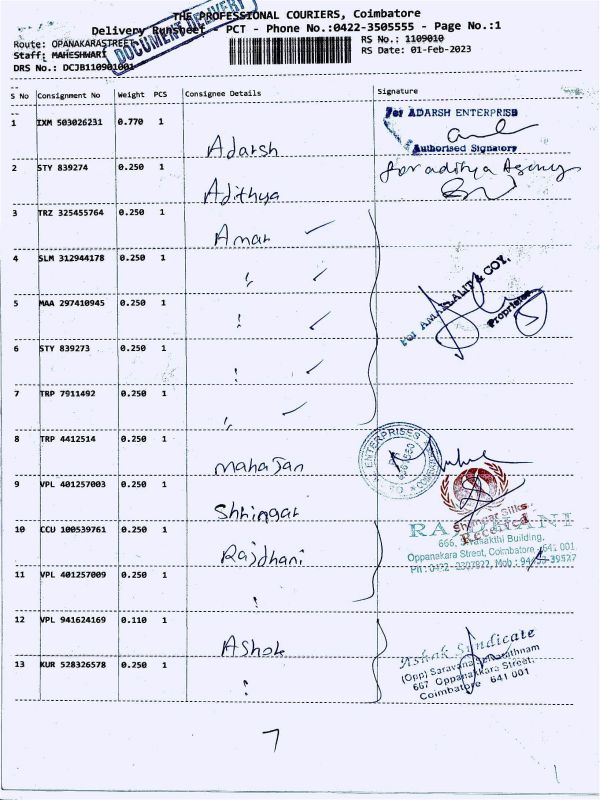 THE PROFESSIONAL COURIERS, Coimbatore
Delivery Runsheet - PCT - Phone No.:0422-3505555 - Page No.:1
DOCUMENT DELIVERY
Route: OPANAKARASTREET
RS No.: 1109010
Staff: MAHESHWARI
RS Date: 01-Feb-2023
DRS No.: DCJB110901001
S No Consignment No Weight PCS Consignee Details Signature
1 IXM 503026231 0.770 1 Adarsh
For ADARSH ENTERPRISE
Authorised Signatory
2 STY 839274 0.250 1 Adithya
for aditya Agency
3 TRZ 325455764 0.250 1 Amar
4 SLM 312944178 0.250 1 "
For AMARLALIT & COY.
Proprietor
5 MAA 297410945 0.250 1 "
6 STY 839273 0.250 1 "
7 TRP 7911492 0.250 1 "
8 TRP 4412514 0.250 1 Mahajan
ENTERPRISES
9 VPL 401257003 0.250 1 Shringar
Shringar Silks
Received
10 CCU 100539761 0.250 1 Rajdhani
RAJDHANI
666, Building,
Oppanakara Street, Coimbatore - 641 001.
11 VPL 401257009 0.250 1 "
12 VPL 941624169 0.110 1 Ashok
Ashok Syndicate
(Opp) Saravana
667 Oppanakkara Street,
Coimbatore 641 001
13 KUR 528326578 0.250 1 "
7